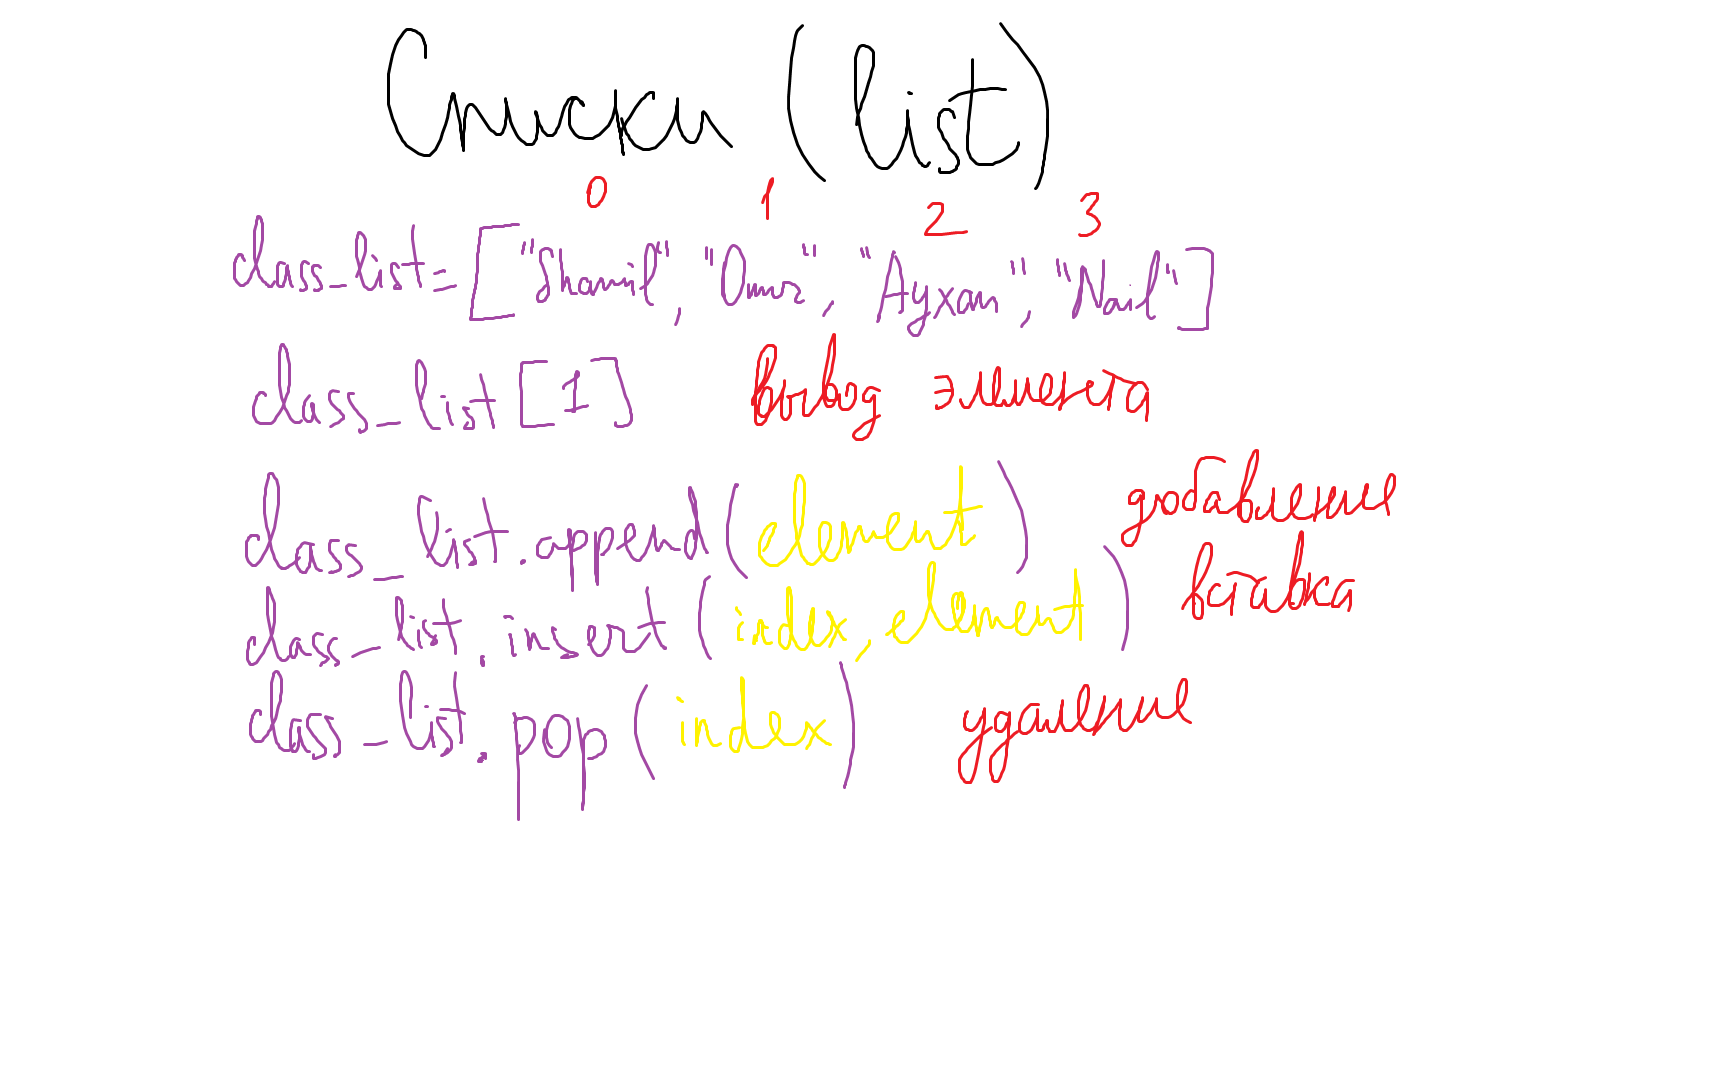 Списки (list)
0 1 2 3
class_list=["Shamil", "Omar", "Ayxan", "Nail"]
class_list[1] вывод элемента
class_list.append(element) добавление
class_list.insert(index, element) вставка
class_list.pop(index) удаление